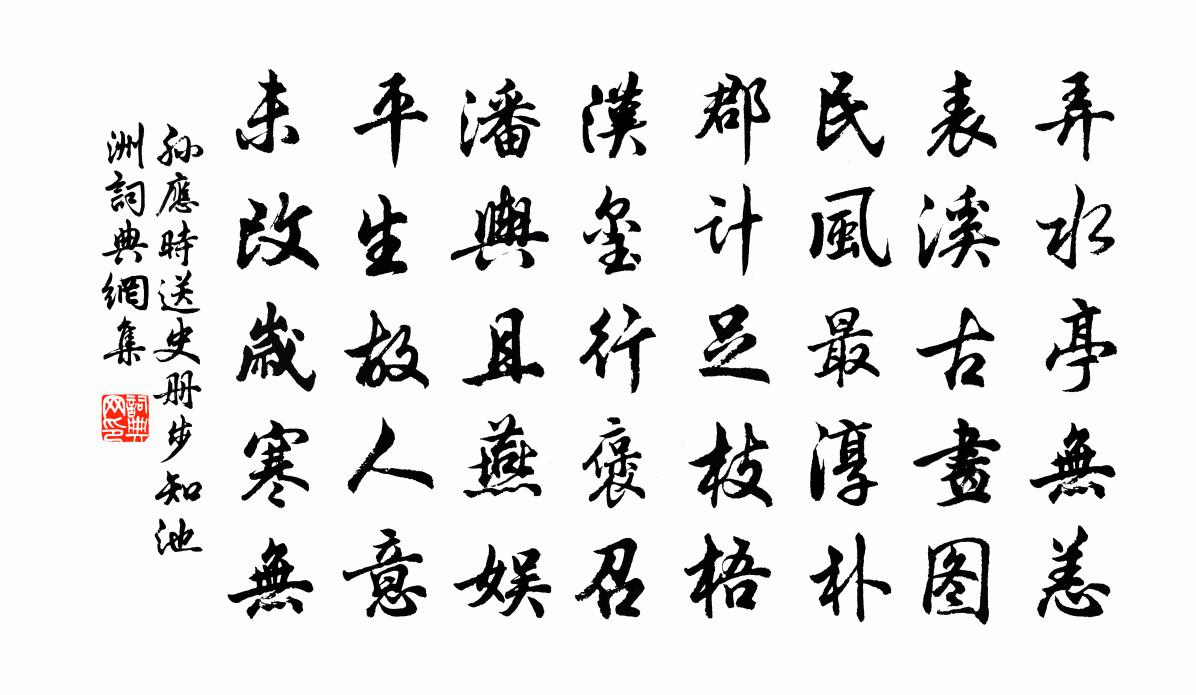 弄水亭無恙
表溪古畫图
民風最淳朴
郡計足枝梧
漢璽行褒召
潘輿且燕娱
平生故人意
未改歲寒無
孫應時送史册步知池
洲詞典網集
詞典
网印